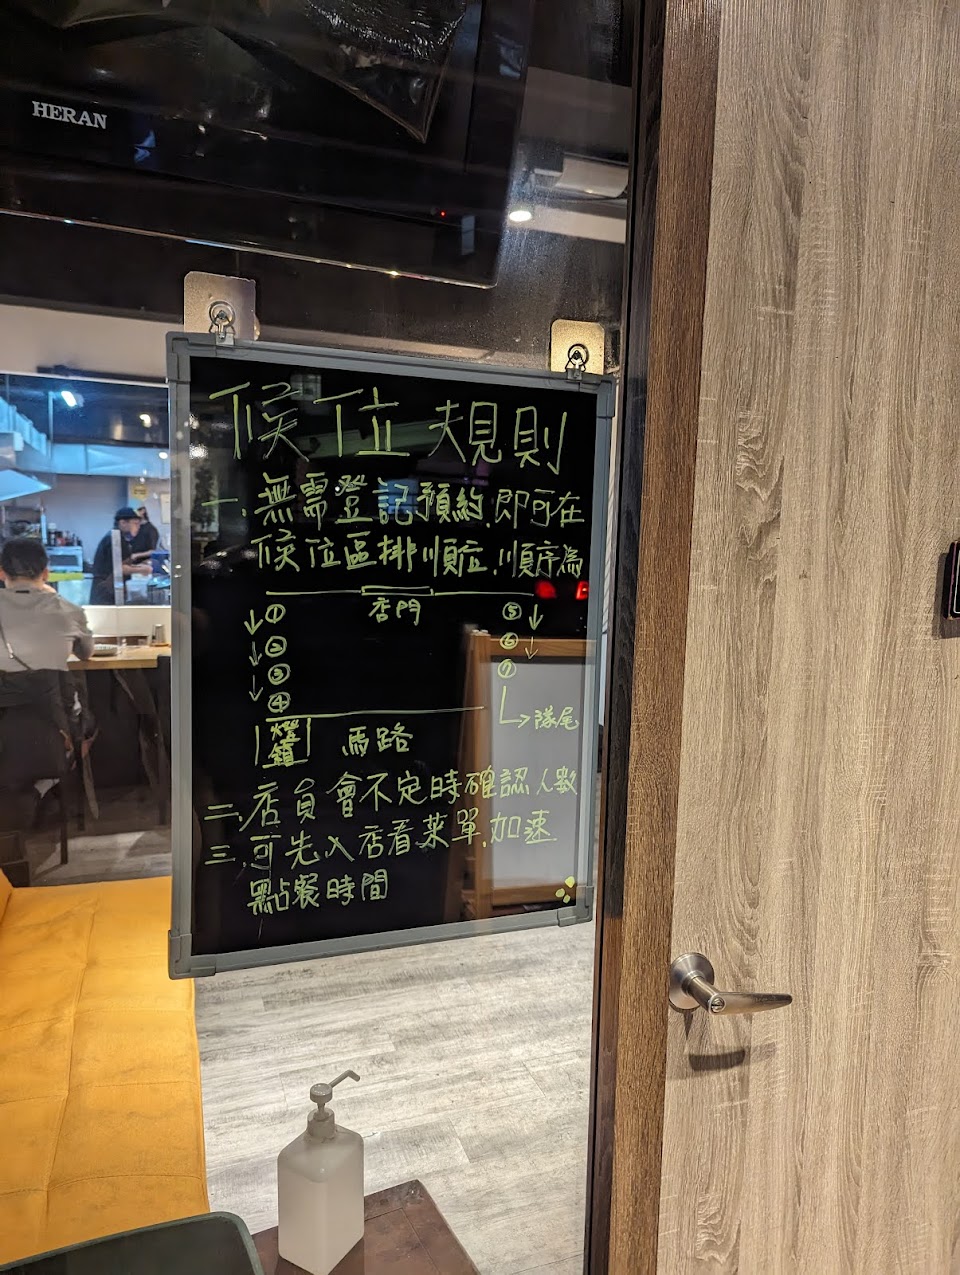 HERAN
候位規則
一.無需登記預約,即可在
候位區排順位,順序為
店門
↓① ⑤↓
↓② ⑥↓
↓③ ⑦
④
↳隊尾
燈籠
馬路
二.店員會不定時確認人數
三.可先入店看菜單,加速
點餐時間